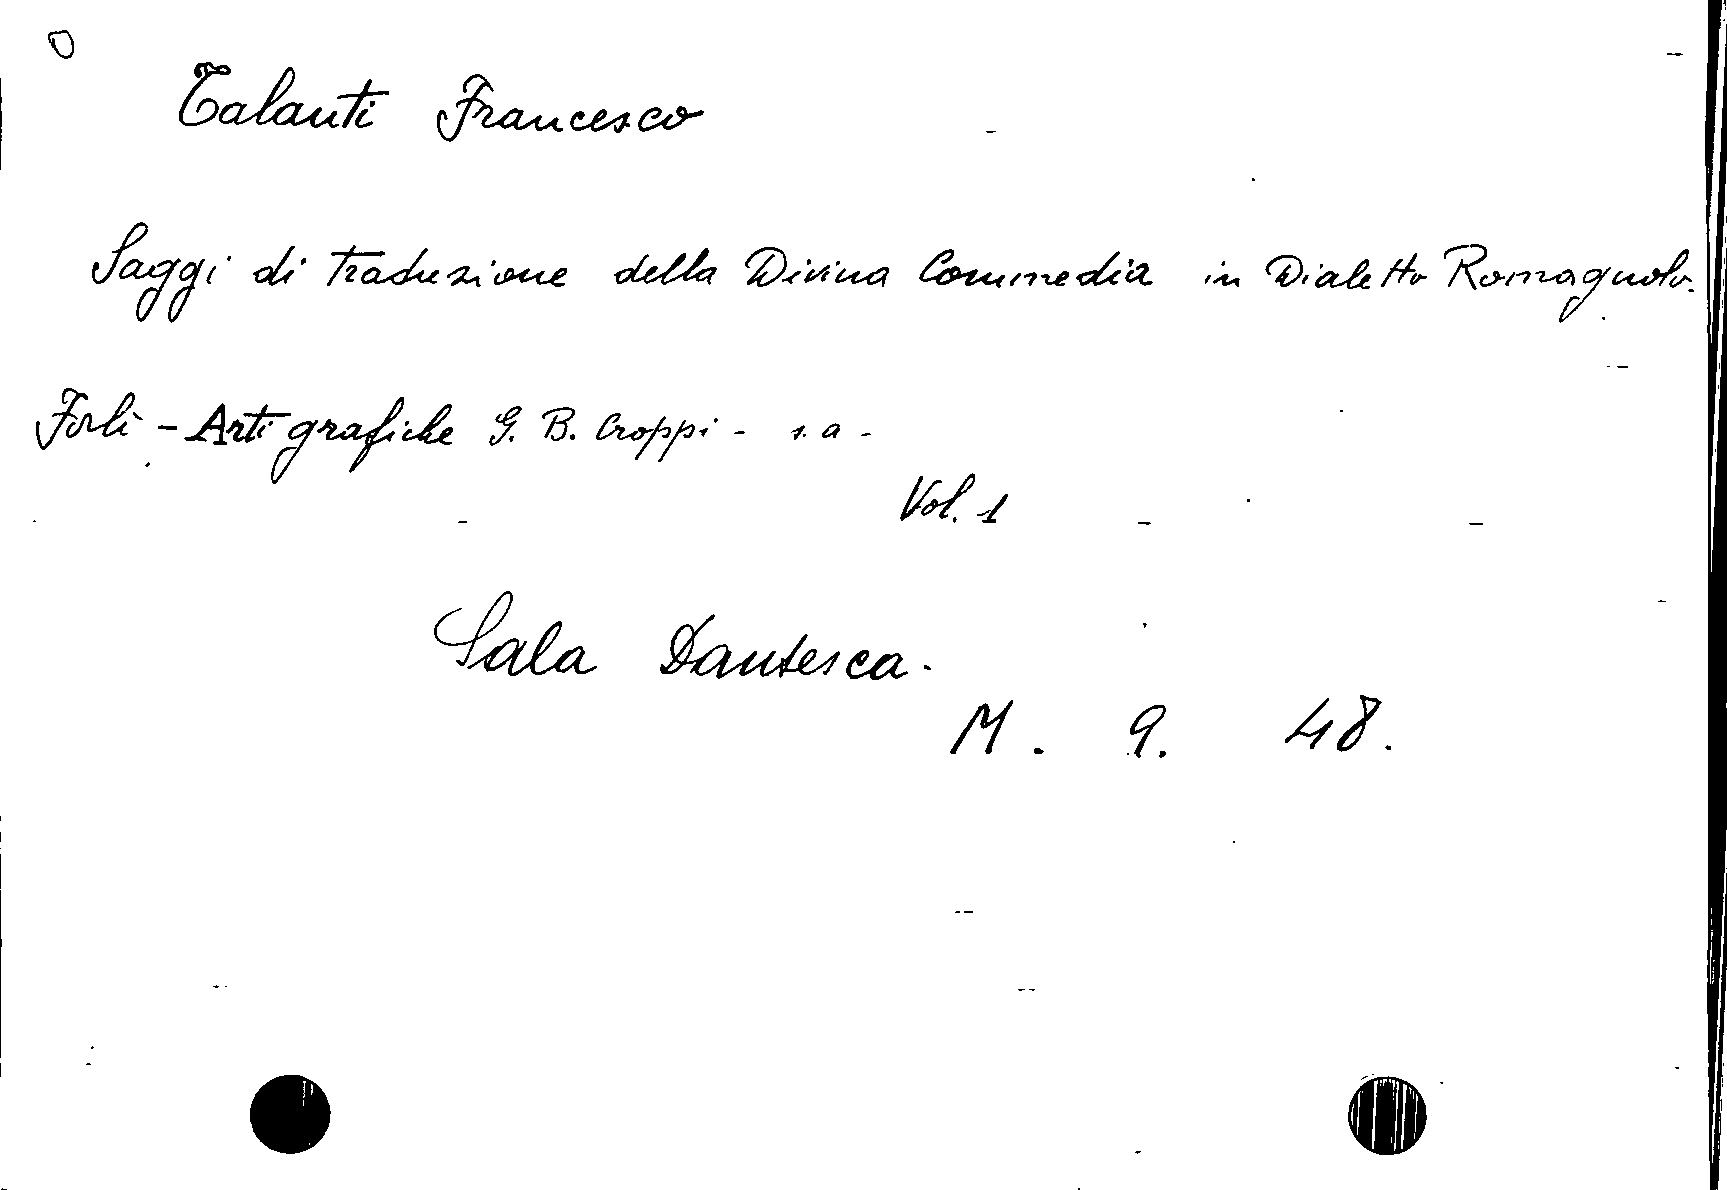 Talanti Francesco
Saggi di traduzione della Divina Commedia in Dialetto Romagnolo.
Forlì - Arti grafiche G. B. Croppi - s. a -
Vol. 1
Sala Dantesca.
M. 9. 48.